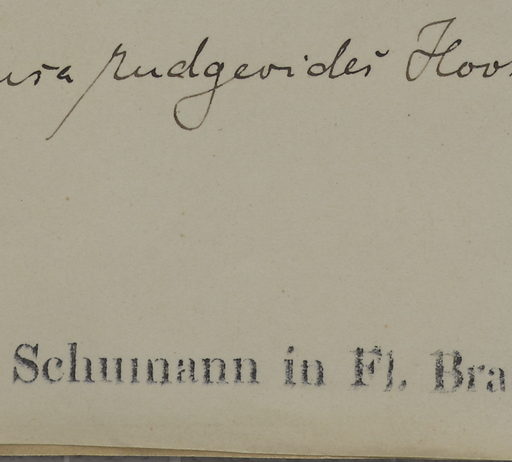 usa rudgeoides Hoo
Schumann in Fl. Bra